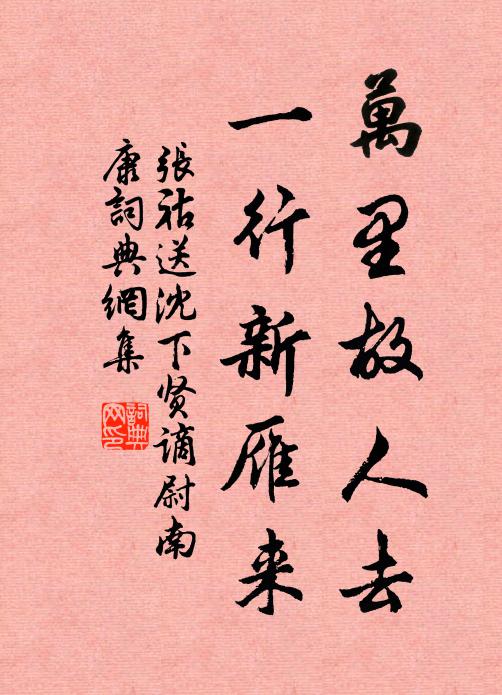 萬里故人去
一行新雁来
張祜送沈下贤謫尉南
康詞典網集
詞典网印